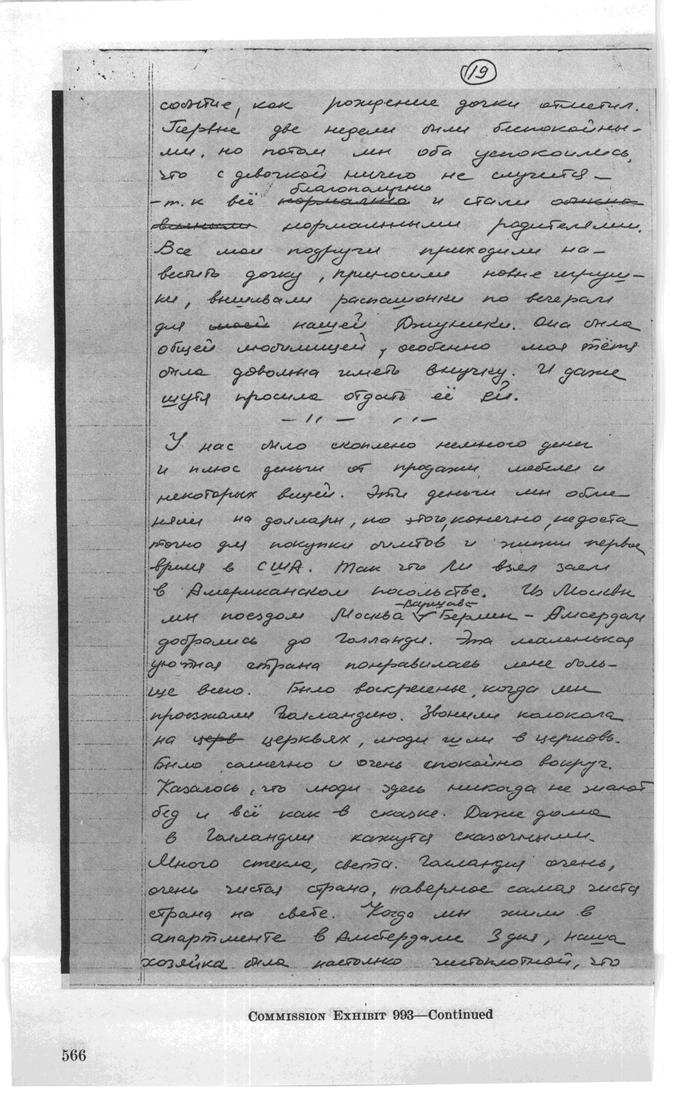 19
событие, как рождение дочки отметил.
Первые две недели были беспокойны-
ми, но потом мы оба успокоились,
что с девочкой ничего не случится –
благополучно
– т.к всё нормально и стали
нормальными родителями.
Все мои подруги приходили на-
вестить дочку, приносили новые игруш-
ки, вышивали распашонки по вечерам
для моей нашей Джуники. Она была
общей любимицей, особенно моя тётя
была довольна иметь внучку. И даже
шутя просила отдать её ей.
— " — " —
У нас было скоплено немного денег
и плюс деньги от продажи мебели и
некоторых вещей. Эти деньги мы обме-
няли на доллары, но этого, конечно, недоста
точно для покупки билтов и жизни первое
время в США. Так что Ли взял заем
в Американском посольстве. Из Москвы
– Варшава –
мы поездом Москва Берлин – Амсердам
добрались до Голланди. Эта маленькая
уютная страна понравилась мне боль-
ще всего. Было воскресенье, когда мы
проезжали Голландию. Звонили колокола
на церв церквях, люди шли в церковь.
Было солнечно и очень спокойно вокруг.
Казалось, что люди здесь никогда не знают
бед и всё как в сказке. Даже дома
в Голландии кажутся сказочными.
Много стекла, света. Голландия очень,
очень чистая страна, наверное самая чиста
страна на свете. Когда мы жили в
апартменте в Амстердаме 3 дня, наша
хозяйка была настолько чистоплотной, что
COMMISSION EXHIBIT 993—Continued
566